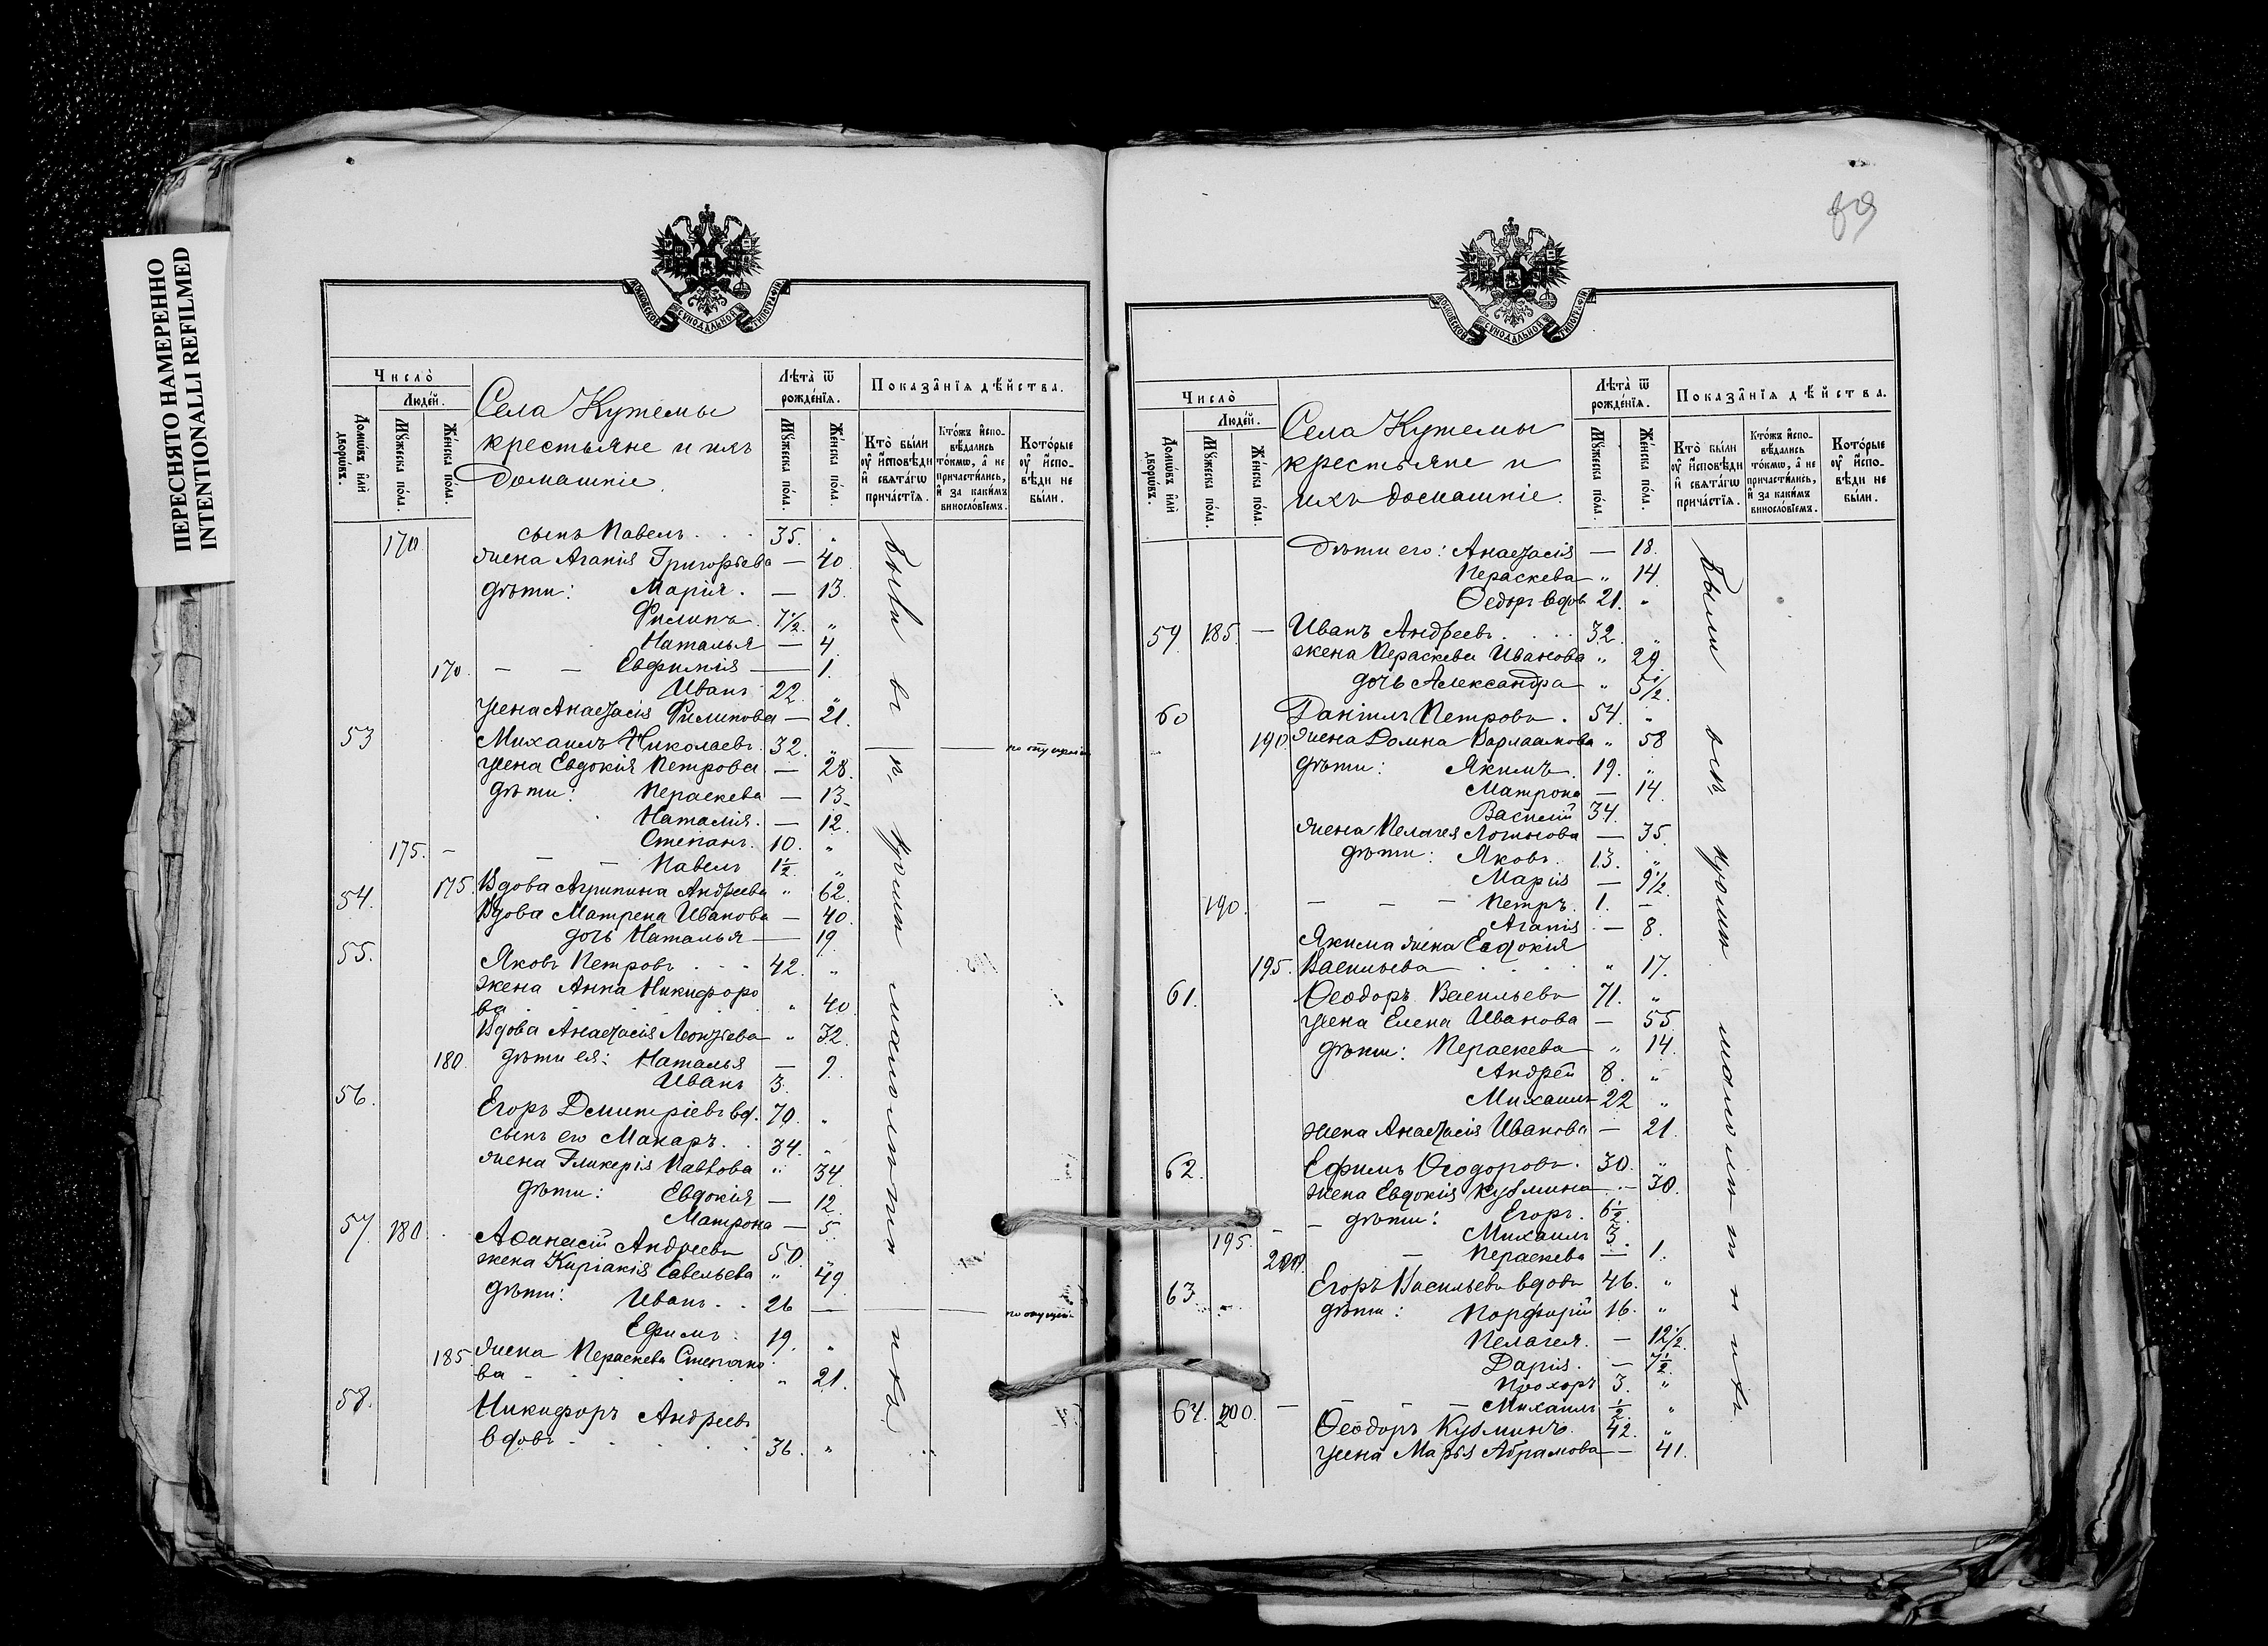 ПЕРЕСНЯТО НАМЕРЕННО
INTENTIONALLI REFILMED
МОСКОВСКОЙ СѴНОДАЛЬНОЙ ТИПОГРАФІИ
Число̀
Людей.
Домѡвъ и҆лѝ дворѡвъ.
Мꙋжеска пола.
Женска пола.
Села Кутемы
крестьяне и ихъ
домашніе
Лѣта̀ ѿ рожденїѧ.
Мꙋжеска пола.
Женска пола.
Показанїѧ дѣйства.
Кто̀ были оу҆ и҆сповѣди и҆ свѧтагѡ причастїѧ.
Ктожъ и҆спо-вѣдались токмѡ, а҆ не причастились, и҆ за какимъ винословїемъ.
Которые оу҆ и҆спо-вѣди не были.
170 сынъ Павелъ . . . 35. "
жена Агапія Григорьева — 40
дѣти: Марія . — 13.
Филипъ . 7½. "
Наталья — 4.
170. — — Евфимія — 1.
Иванъ 22. "
жена Анастасія Филипова — 21.
53 Михаилъ Николаевъ. 32. " — — по опущенію
жена Евдокія Петрова — 28.
дѣти: Пераскева — 13.
Наталія. — 12.
Степанъ. 10. "
175. — — — Павелъ 1½ "
54. 175. Вдова Агрипина Андреева " 62.
Вдова Матрена Иванова — 40.
дочь Наталья — 19.
55. Яковъ Петровъ . . . 42. "
жена Анна Никифоро
ва . . . . . " 40
Вдова Анастасія Леонтьева " 32.
180. дѣти ея: Наталья — 9.
Иванъ 3.
56. Егоръ Дмитріевъ вд. 70. "
сынъ его Макаръ . . 34. "
жена Гликерія Павлова " 34.
дѣти: Евдокія — 12.
Матрона — 5.
57. 180. Аѳанасій Андреевъ 50. "
жена Киріакія Савельева " 49.
дѣти: Иванъ . . 26 — — — по опущен.
Ефимъ . 19. "
185. жена Пераскева Степано
ва - . . . . " 21.
58. Никифоръ Андреевъ
вдовъ . . . . . 36. "
Были
малолѣтнихъ
89
МОСКОВСКОЙ СѴНОДАЛЬНОЙ ТИПОГРАФІИ
Число̀
Людей.
Домѡвъ и҆лѝ дворѡвъ.
Мꙋжеска пола.
Женска пола.
Села Кутемы
крестьяне и
ихъ домашніе.
Лѣта̀ ѿ рожденїѧ.
Мꙋжеска пола.
Женска пола.
Показанїѧ дѣйства.
Кто̀ были оу҆ и҆сповѣди и҆ свѧтагѡ причастїѧ.
Ктожъ и҆спо-вѣдались токмѡ, а҆ не причастились, и҆ за какимъ винословїемъ.
Которые оу҆ и҆спо-вѣди не были.
Дѣти его: Анастасія — 18.
Пераскева " 14.
Ѳедоръ вдов 21. "
59. 185. — Иванъ Андреевъ . . . 32. "
жена Пераскева Иванова " 29.
дочь Александра " 5½.
60 Даніилъ Петровъ . 54. "
190. жена Домна Варлаамова " 58
дѣти: Якимъ . 19. "
Матрона — 14.
Василій 34.
жена Пелагея Логинова — 35.
дѣти: Яковъ . 13. "
Марія — 9½.
190. — — — Петръ . 1. —
Агапія . — 8.
Якима жена Евдокія
195. Васильева . . . . " 17.
61. Ѳеодоръ Васильевъ 71. "
жена Елена Иванова — 55.
дѣти: Пераскева — " 14.
Андрей 8. "
Михаилъ 22 "
жена Анастасія Иванова — 21.
62. Ефимъ Ѳеодоровъ. 30. "
жена Евдокія Кузмина — 30.
— дѣти: Егоръ . 6½.
195. — Михаилъ 3.
200. — Пераскева — 1.
63. Егоръ Васильевъ вдовъ 46. "
дѣти: Порфирій 16. "
Пелагея. — 12½.
Дарія. — 7½.
Прохоръ 3. "
200. — — — — Михаилъ ½. "
64. Ѳеодоръ Кузминъ. 42. "
жена Марья Абрамова — 41.
Были всѣ кромѣ малолѣтнихъ